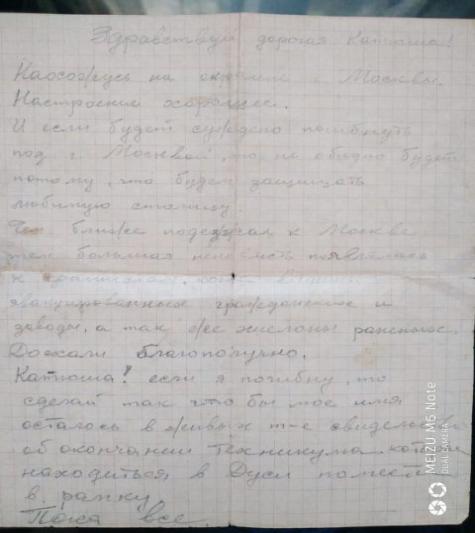 Здравствуй дорогая Катюша!
Нахожусь на окраине г. Москвы.
Настроение хорошее.
И если будет суждено погибнуть
под г. Москвой, то не обидно будет
потому, что будем защищать
любимую столицу.
Чем ближе подъезжал к Москве
тем большая ненависть появлялась
к
эвакуированные гражданские и
заводы, а так же эшелоны раненых.
Доехали благополучно.
Катюша! если я погибну, то
сделай так что бы мое имя
осталось в живых т-е свидетельство
об окончании техникума
находиться в Дуси помести
в рамку
Пока все.
MEIZU M6 Note
DUAL CAMERA